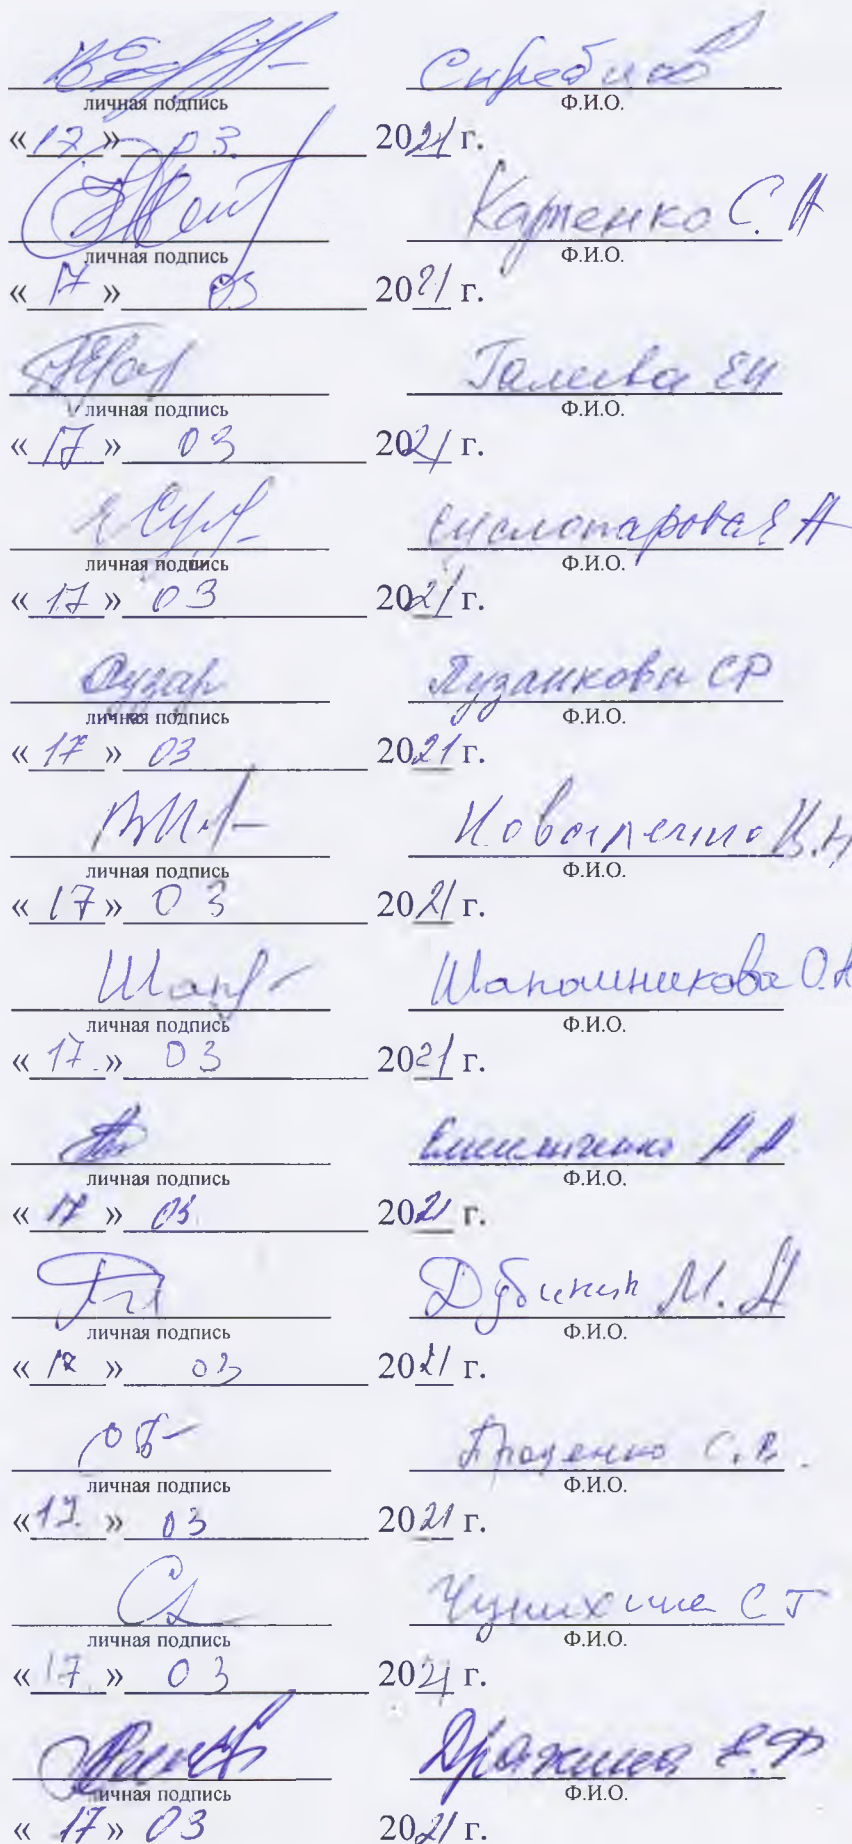 личная подпись Ф.И.О.
«17» 03. 2021 г.
Карпенко С. А
личная подпись Ф.И.О.
«17» 03 2021 г.
Галеева ЕИ
личная подпись Ф.И.О.
«17» 03 2021 г.
личная подпись Ф.И.О.
«17» 03 2021 г.
Лузанкова СР
личная подпись Ф.И.О.
«17» 03 2021 г.
личная подпись Ф.И.О.
«17» 03 2021 г.
Шап Шапошникова О.Н
личная подпись Ф.И.О.
«17.» 03 2021 г.
личная подпись Ф.И.О.
«17» 03 2021 г.
Дубинин М. А
личная подпись Ф.И.О.
«17» 03 2021 г.
С.В.
личная подпись Ф.И.О.
«17.» 03 2021 г.
Чунихина С Г
личная подпись Ф.И.О.
«17.» 03 2021 г.
Дражина Е.Ф
личная подпись Ф.И.О.
«17» 03 2021 г.